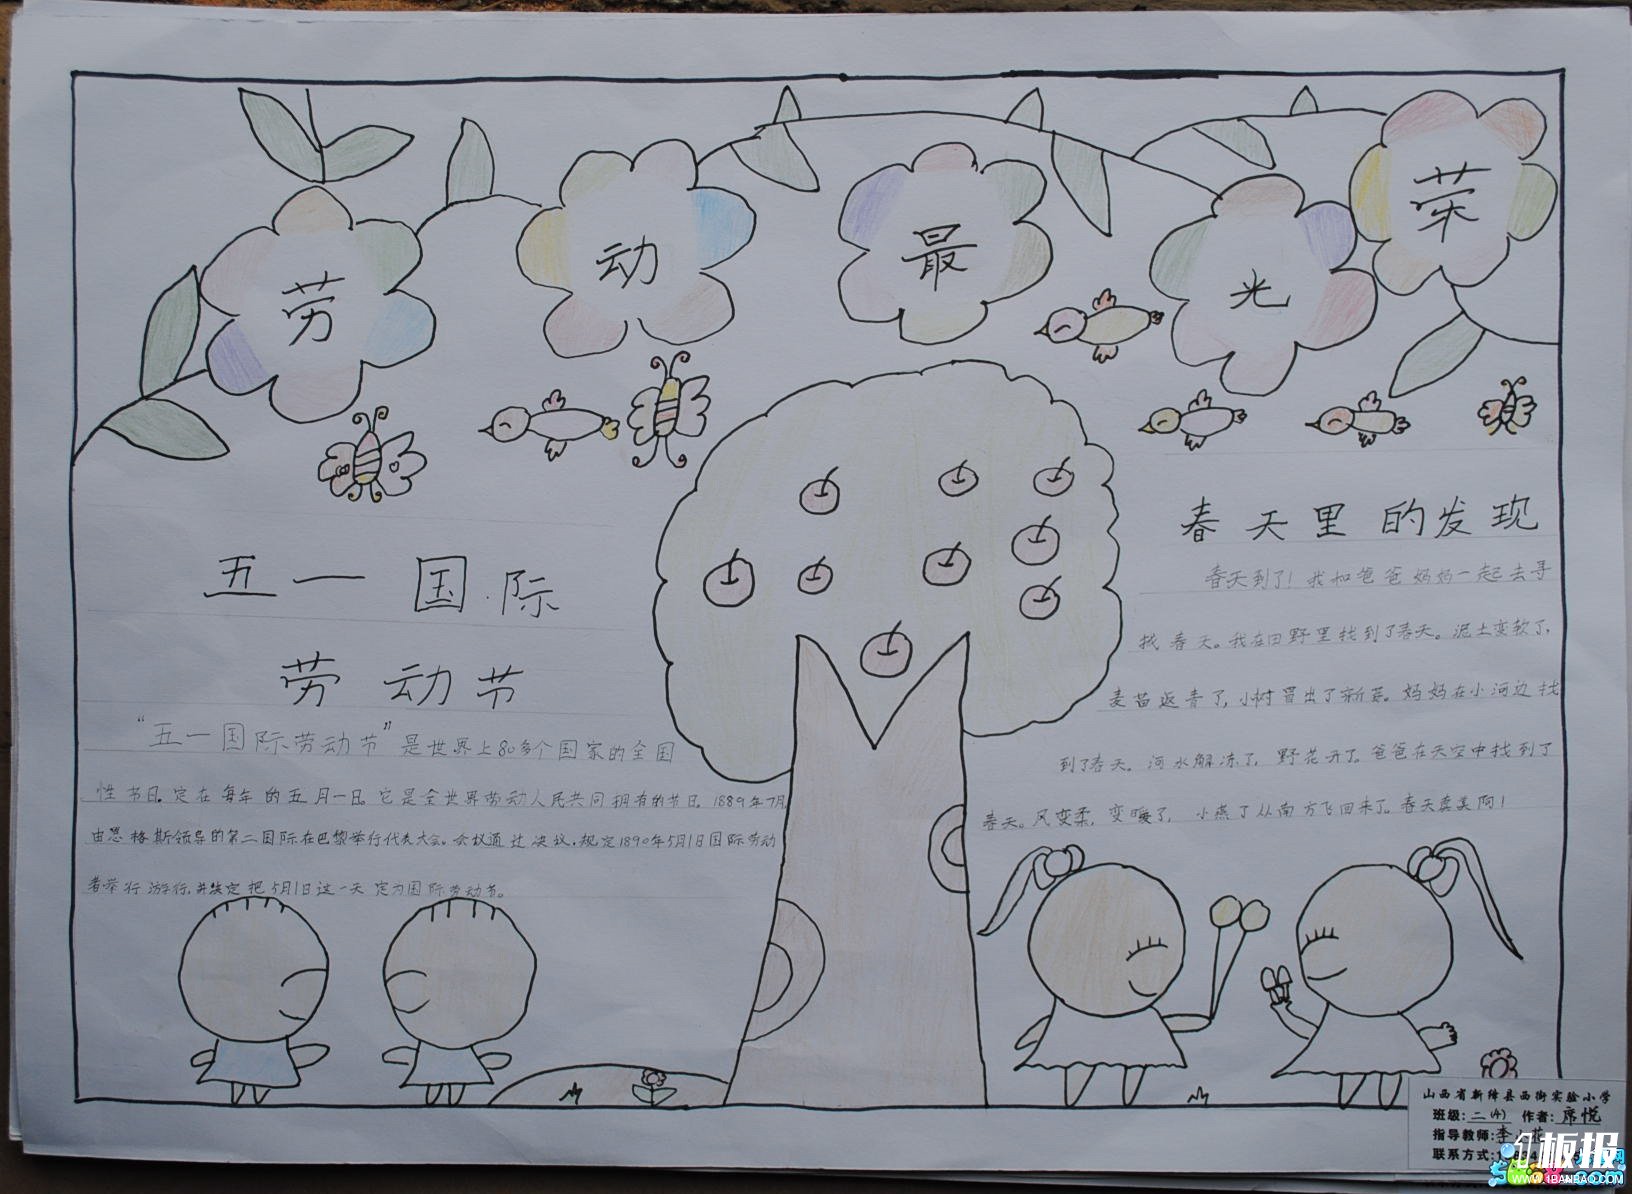 劳动最光荣
五一国际
劳动节
“五一国际劳动节”是世界上80多个国家的全国
性节日。定在每年的五月一日。它是全世界劳动人民共同拥有的节日。1889年7月,
由恩格斯领导的第二国际在巴黎举行代表大会。会议通过决议,规定1890年5月1日国际劳动
者举行游行,并决定把5月1日这一天定为国际劳动节。
春天里的发现
春天到了!我和爸爸妈妈一起去寻
找春天。我在田野里找到了春天。泥土变软了,
麦苗返青了,小树冒出了新芽。妈妈在小河边找
到了春天。河水解冻了,野花开了。爸爸在天空中找到了
春天。风变柔,变暖了,小燕子从南方飞回来了。春天真美啊!
山西省新绛县西街实验小学
班级:二(4) 作者:席悦
指导教师:李
联系方式:1
板报
WWW.1BANBAO.COM